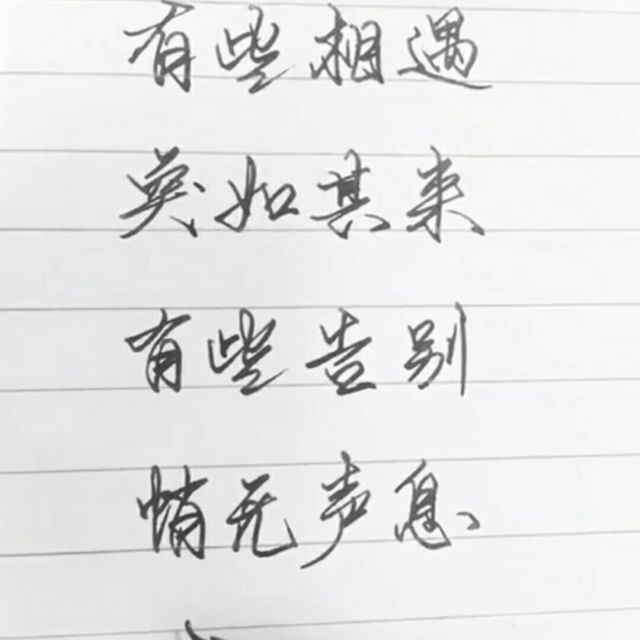 有些相遇
突如其来
有些告别
悄无声息